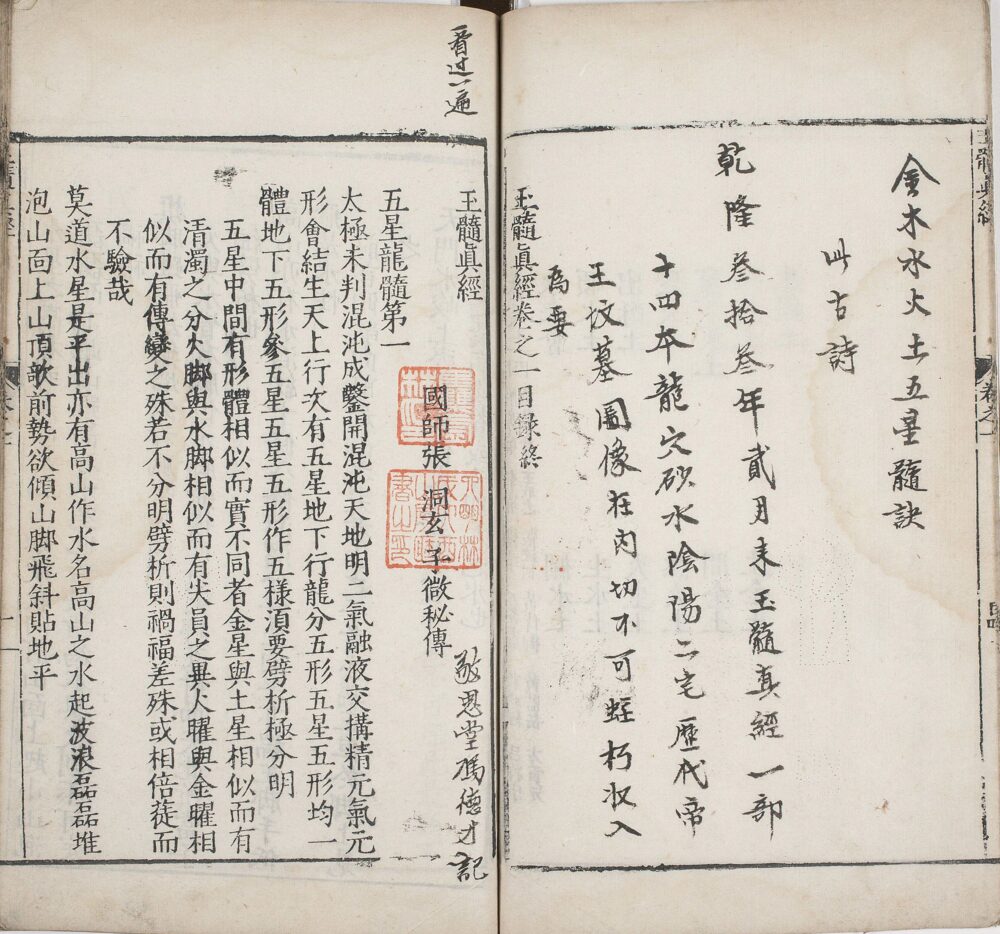 金木水火土五星髓訣
此古詩
乾隆叁拾叁年貳月末玉髓真經一部
十四本龍穴砂水陰陽二宅歷代帝
王坟墓圖像在内切不可蛀朽收入
為要
玉髓眞經卷之一目録終
看过一遍
玉髓眞經
國師張 洞玄 子微秘傳
敬思堂馮德才記
五星龍髓第一
太極未判混沌成鑿開混沌天地明二氣融液交搆精元氣元
形會結生天上行次有五星地下行龍分五形五星五形均一
體地下五形參五星五星五形作五樣湏要劈析極分明
五星中間有形體相似而實不同者金星與土星相似而有
清濁之分火脚與水脚相似而有尖員之異火曜與金曜相
似而有傳變之殊若不分明劈析則禍福差殊或相倍蓰而
不驗哉
莫道水星是平出亦有高山作水名高山之水起波浪磊磊堆
泡山面上山頂欹前勢欲傾山脚飛斜貼地平
玉髓眞經
卷之一
一